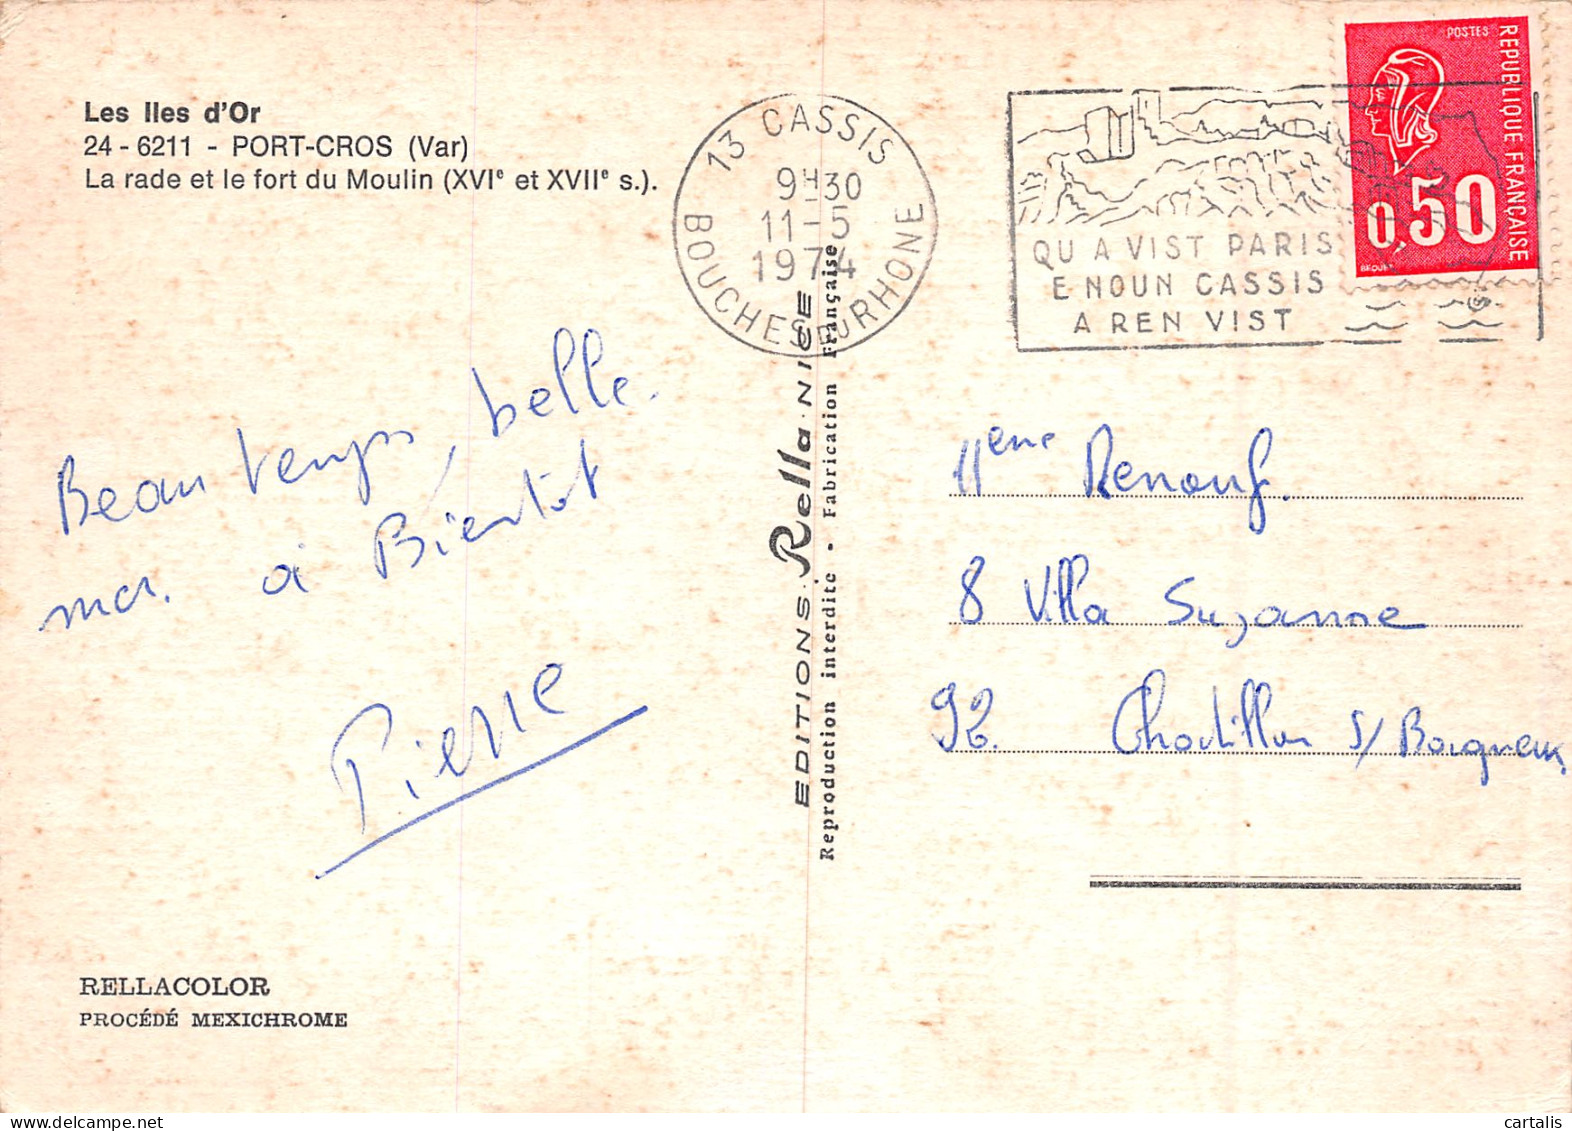 Les Iles d'Or
24 - 6211 - PORT-CROS (Var)
La rade et le fort du Moulin (XVIe et XVIIe s.).
13 CASSIS
9H30
11-5
1974
BOUCHES DU RHONE
QU A VIST PARIS
E NOUN CASSIS
A REN VIST
POSTES
REPUBLIQUE FRANÇAISE
0,50
BEQUET
Beau temps, belle
mer. à Bientôt
Pierre
EDITIONS Rella NICE
Reproduction interdite - Fabrication Française
Mme Renouf.
8 Villa Suzanne
92. Chatillon s/ Bagneux
RELLACOLOR
PROCÉDÉ MEXICHROME
cartalis